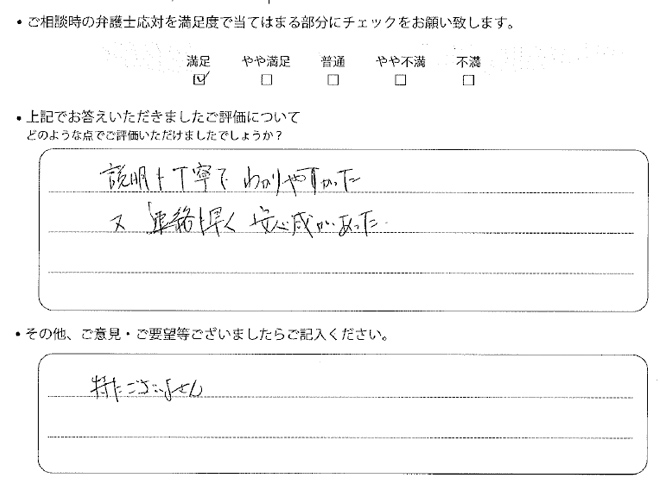 ・ご相談時の弁護士応対を満足度で当てはまる部分にチェックをお願い致します。
満足 やや満足 普通 やや不満 不満
☑ ☐ ☐ ☐ ☐
・上記でお答えいただきましたご評価について
どのような点でご評価いただけましたでしょうか？
説明も丁寧で わかりやすかった
又 連絡も早く 安心成があった.
・その他、ご意見・ご要望等ございましたらご記入ください。
特にございません